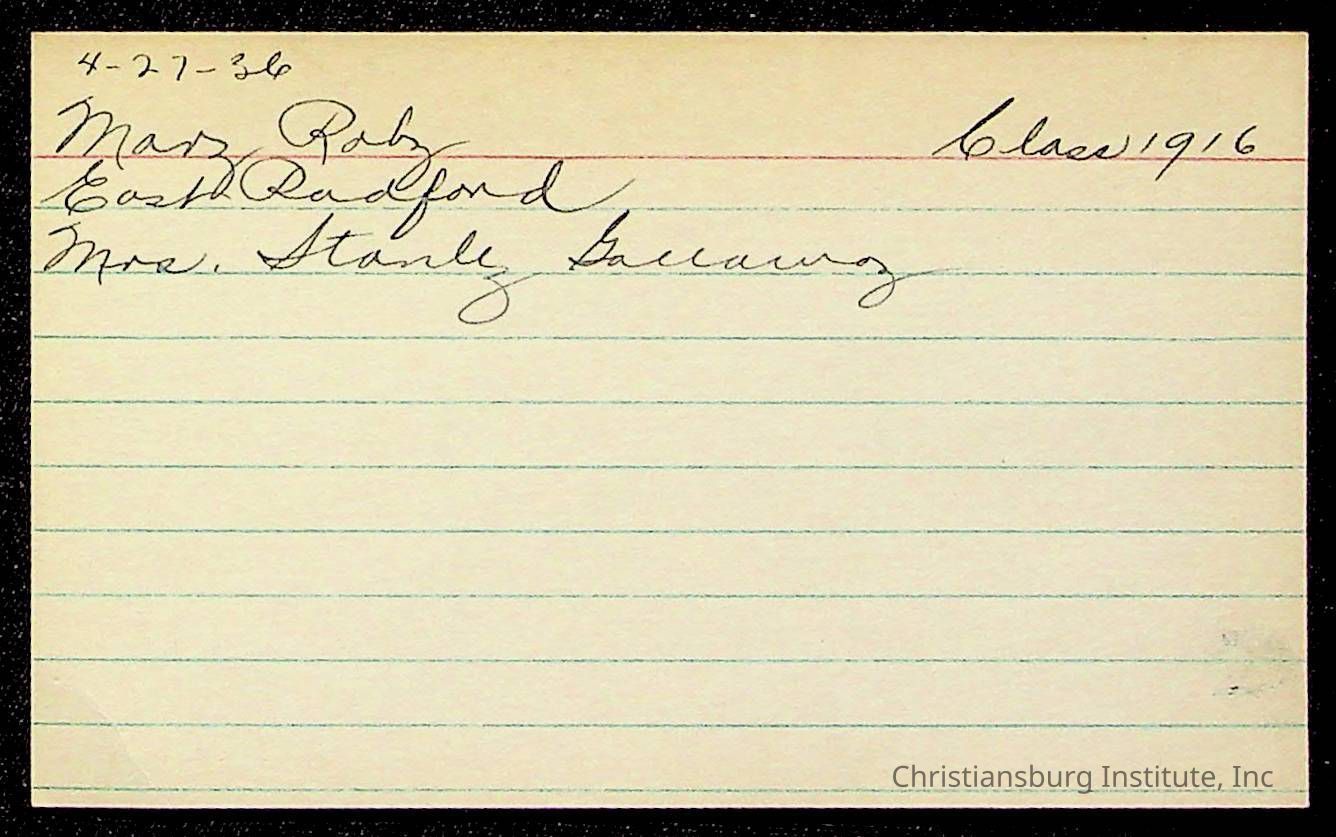 4-27-36
Mary Roby Class 1916
East Radford
Mrs. Stanley Gallaway
Christiansburg Institute, Inc